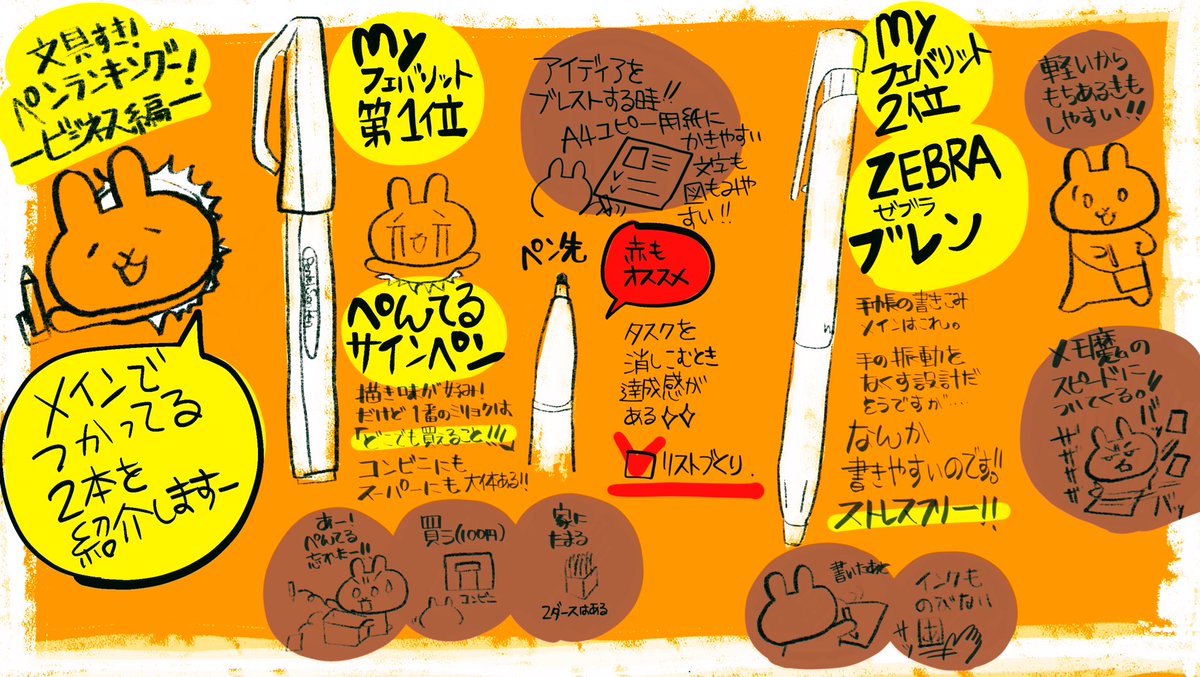 文具すき!
ペンランキングー!
ービジネス編ー
メインで
つかってる
2本を
紹介しますー
My
フェバリット
第1位
ぺんてる
サインペン
描き味が好み!
だけど1番のミリョクは
「どこでも買えること!!!」
コンビニにも
スーパーにも大体ある!!
あー!
ぺんてる
忘れたー!!
買う(100円)
コンビニ
家に
たまる
2ダースはある
アイディアを
ブレストする時!!
A4コピー用紙に
かきやすい
文字も
図もみや
すい!!
ペン先
赤も
オススメ
タスクを
消しこむとき
達成感が
ある
リストづくり
My
フェバリット
2位
ZEBRA
ゼブラ
ブレン
手帳の書きこみ
メインはこれ。
手の振動を
なくす設計だ
そうですが....
なんか
書きやすいのです!!
ストレスフリー!!
書いたあと
インクも
のびない
軽いから
もちあるきも
しやすい!!
メモ魔の
スピードに
ついてくる。!!
ザ
ザ
ザ
ザ
バッ
バッ